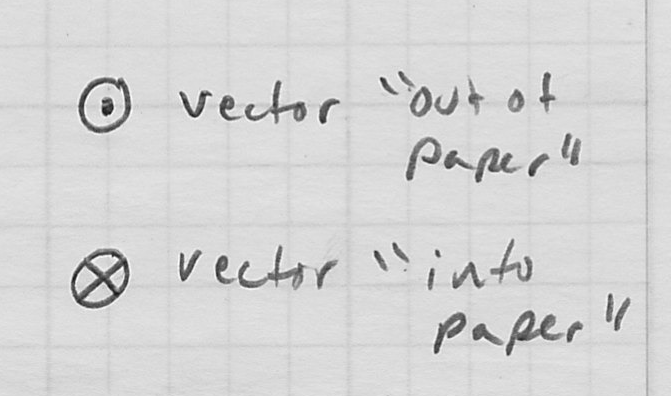 ⊙ vector "out of
paper"
⊗ vector "into
paper"